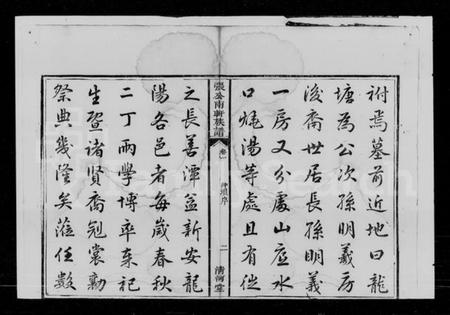 祔焉墓前近地曰龍
塘為公次孫明羲房
後裔世居長孫明義
一房又分處山應水
口㙡湯等處且有從
張公南軒族譜 卷 神壇序 二 清河堂
之長善潭益新安龍
陽各邑者每歲春秋
二丁兩學博率來祀
生暨諸賢裔冠裳勷
祭典幾隆矣蒞任數